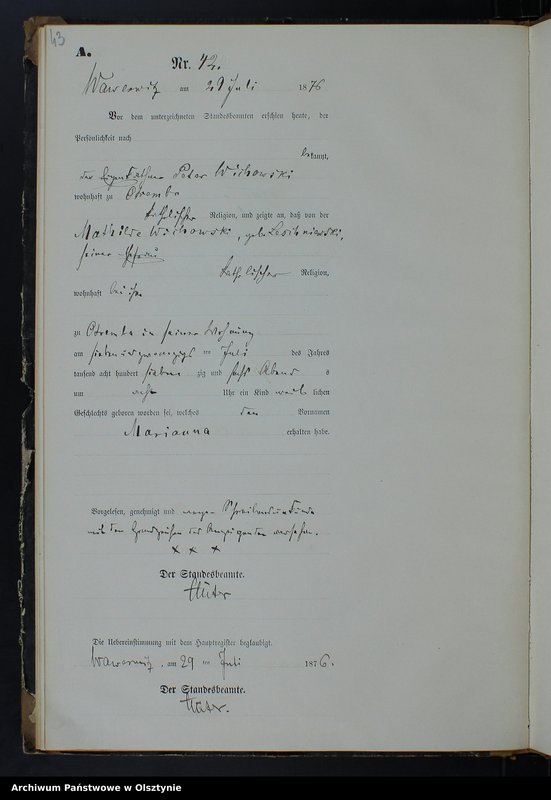 43
A.
Nr. 42.
Wawerwitz am 29 Juli 1876
Vor dem unterzeichneten Standesbeamten erschien heute, der
Persönlichkeit nach
bekannt,
der Eigenkäthner Peter Wichowski
wohnhaft zu Otremba
katholischer Religion, und zeigte an, daß von der
Mathilde Wichowski, geb.
seiner Ehefrau
katholischer Religion,
wohnhaft bei ihm
zu Otremba in seiner Wohnung
am sieben und zwanzigsten Juli des Jahres
tausend acht hundert siebenzig und sechs Abends
um acht Uhr ein Kind weiblichen
Geschlechts geboren worden sei, welches den Vornamen
Marianna erhalten habe.
Vorgelesen, genehmigt und wegen Schreibensunkunde
mit den Handzeichen des Anzeigenden versehen.
x x x
Der Standesbeamte.
Die Uebereinstimmung mit dem Hauptregister beglaubigt.
Wawerwitz, am 29 ten Juli 1876.
Der Standesbeamte.
Archiwum Państwowe w Olsztynie